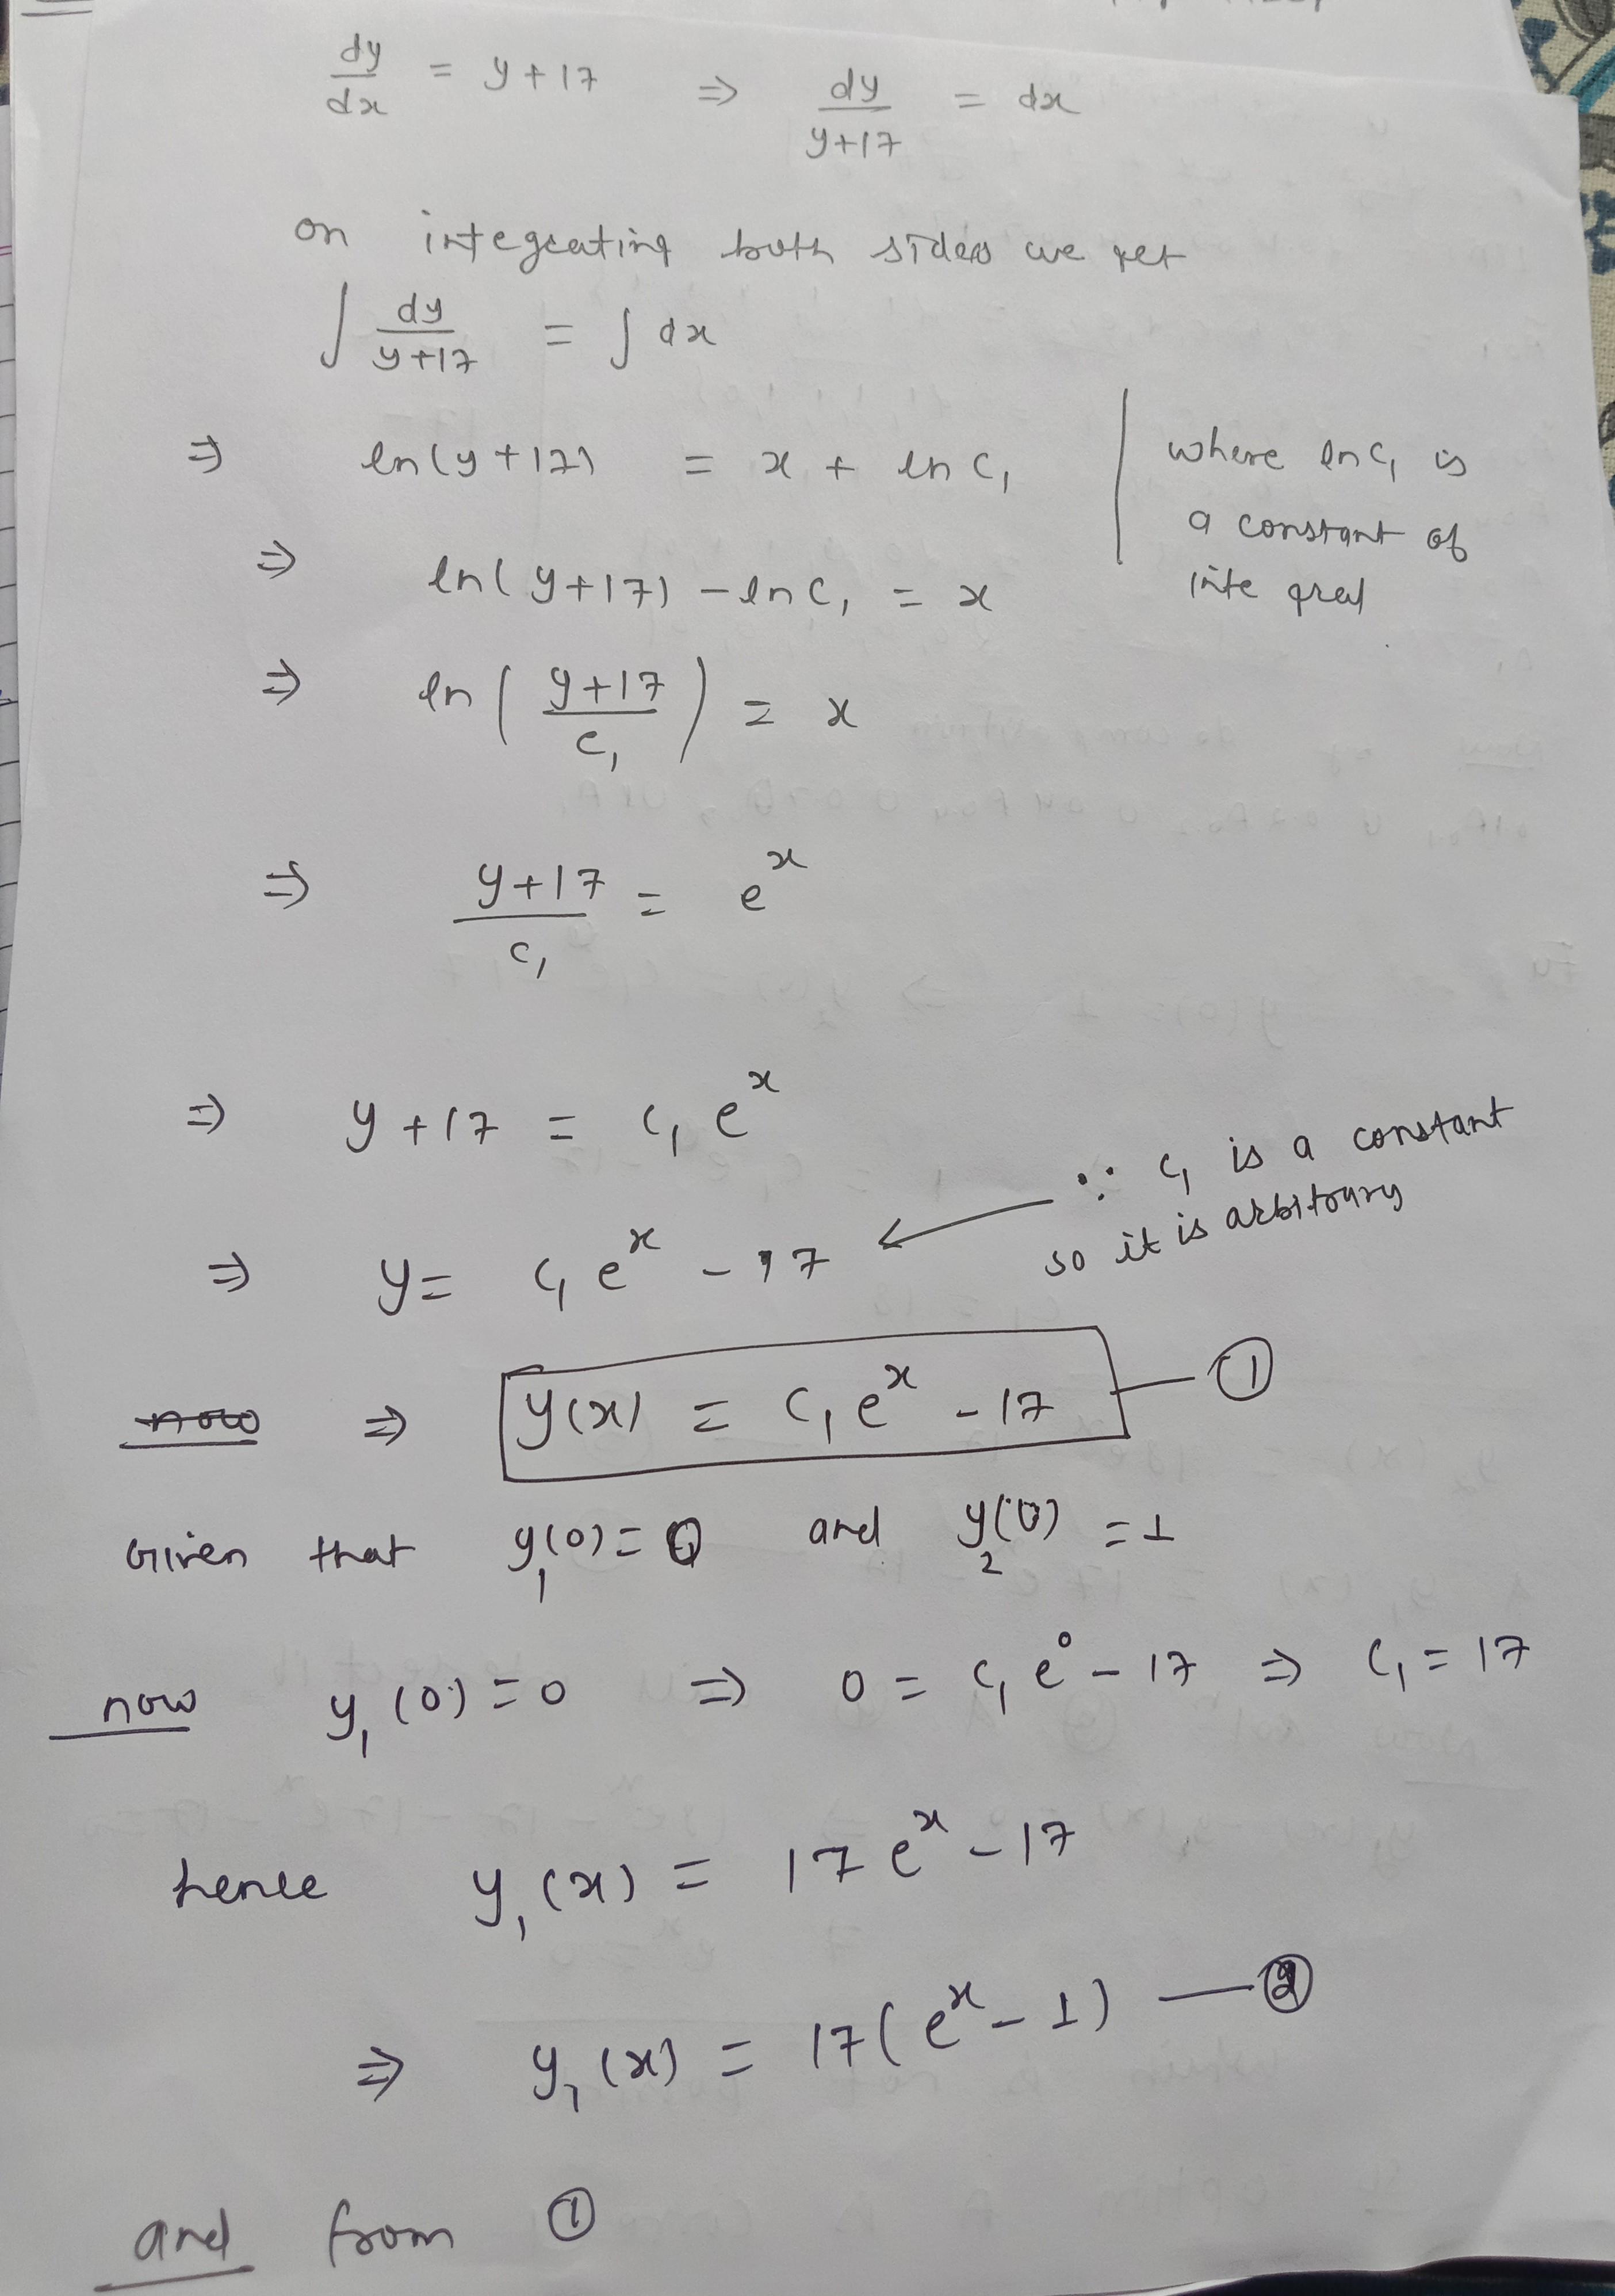 dy/dx = y+17 ⇒ dy/y+17 = dx
on integrating both sides we get
∫ dy/y+17 = ∫ dx
⇒ ln(y+17) = x + ln C₁ | where ln C₁ is
a constant of
integral
⇒ ln(y+17) - ln C₁ = x
⇒ ln(y+17/C₁) = x
⇒ y+17/C₁ = eˣ
⇒ y+17 = C₁ eˣ
⇒ y = C₁ eˣ - 17 ← ∵ C₁ is a constant
so it is arbitrary
now ⇒ y(x) = C₁ eˣ - 17 — ①
Given that y₁(0) = 0 and y₂(0) = 1
now y₁(0) = 0 ⇒ 0 = C₁ e⁰ - 17 ⇒ C₁ = 17
hence y₁(x) = 17 eˣ - 17
⇒ y₁(x) = 17(eˣ - 1) — ②
and from ①